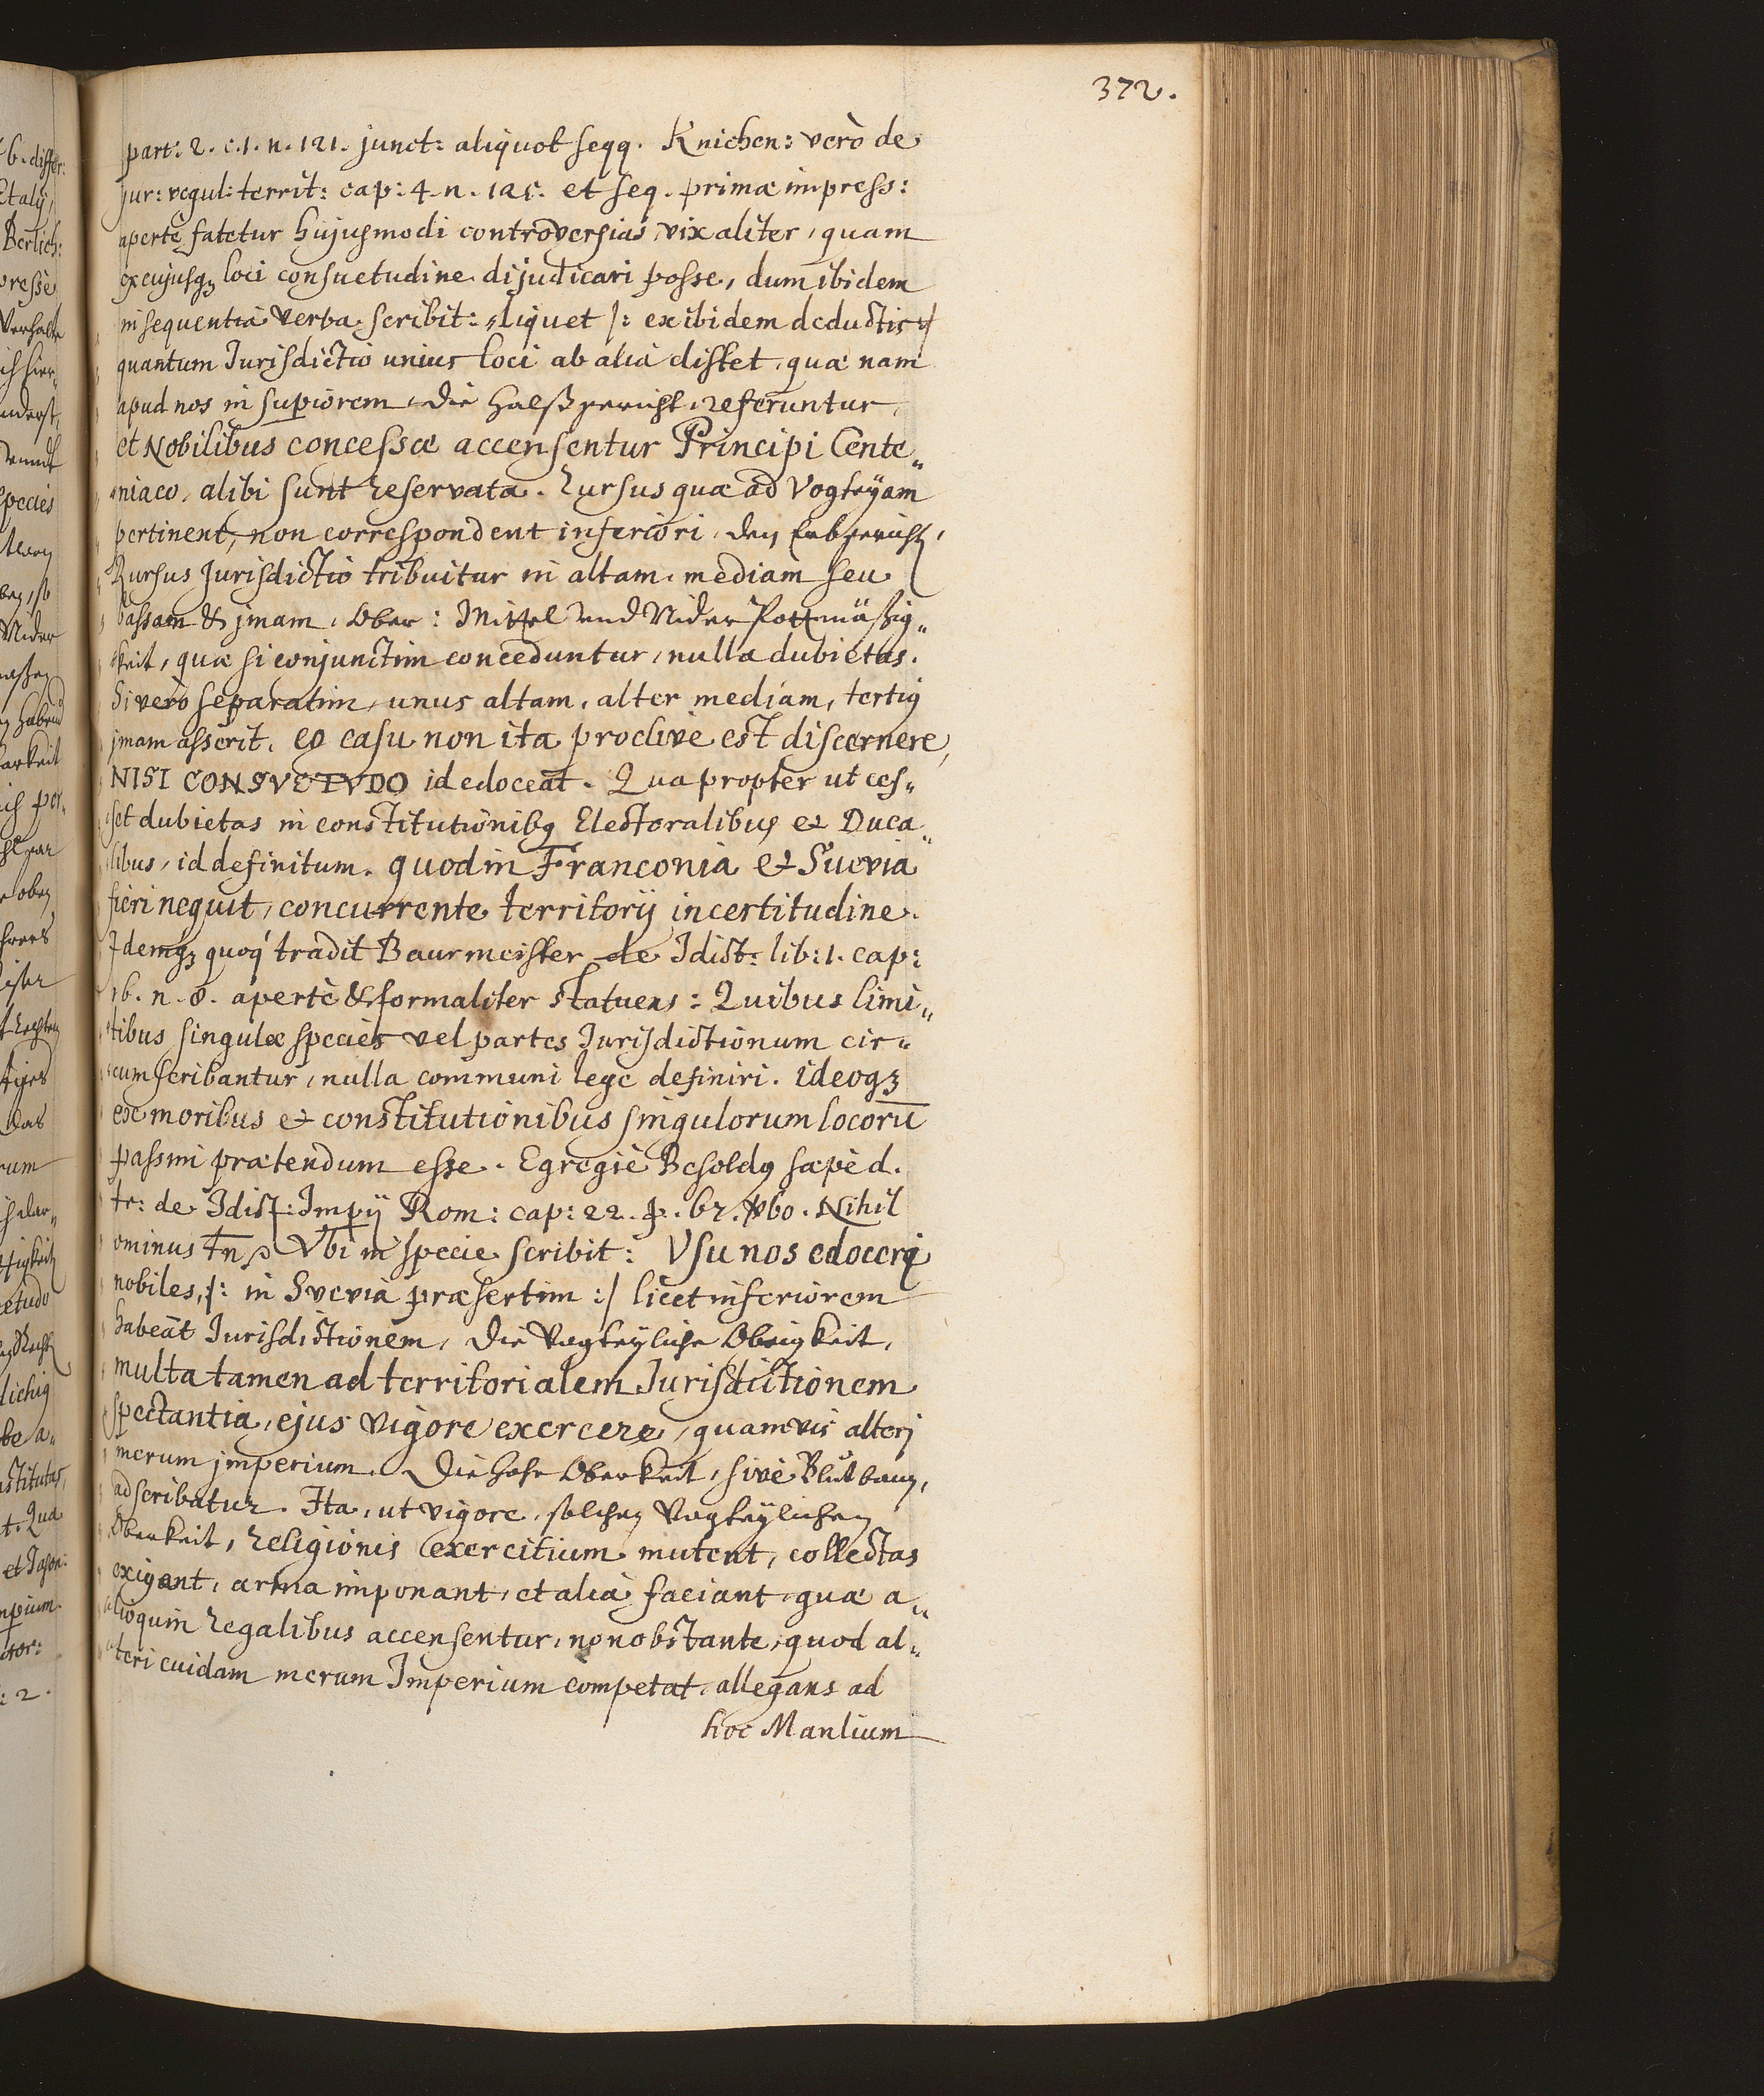 372.
part: 2. c. 1. n. 121. junct: aliquot seqq. Knichen: verò de
jur: regul: territ: cap: 4. n. 125. et seq. primæ impress:
apertè fatetur hujusmodi controversias vix aliter, quam
ex cujusq3 loci consuetudine dijudicari posse, dum ibidem
insequentia verba scribit: „liquet /: ex ibidem deductis :/
quantum Jurisdictio unius loci ab alia distet, quæ nam
apud nos in supiorem, die Halßgericht, referuntur,
et Nobilibus concessæ accensentur Principi Cente„
niaco, alibi sunt reservata. Rursus quæ ad Vogteÿam
pertinent, non correspondent inferiori, den Erbgericht,
Rursus Jurisdictio tribuitur in altam, mediam seu
bassam & jmam, Ober: Mittel und Nider Pottmäßig„
keit, quæ si conjunctim conceduntur, nulla dubietas.
Si verò separatim, unus altam, alter mediam, tertiq
jmam asserit, eo casu non ita proclive est discernere,
NISI CONSVETVDO id edoceat. Quapropter ut ces„
set dubietas in constitutionibq Electoralibus et Duca„
libus, id definitum. quod in Franconia et Suevia
fieri nequit, concurrente territorij incertitudine.
Idemq3 quoq tradit Baurmeister de Jdict: lib: 1. cap:
16. n. 8. apertè & formaliter statuens: Quibus limi„
tibus singulæ species vel partes Jurisdictionum cir„
cumscribantur, nulla communi lege definiri. ideoq3
ex moribus et constitutionibus singulorum locorū
passim prætendum esse. Egregiè Besoldq sæpè d.
tr: de Jdict: Impij Rom: cap: 22. p. 67. vbo. Nihil
ominus tn Vbi in specie scribit: Vsu nos edoceri
nobiles, /: in Svevia præsertim :/ licet inferiorem
habeāt Jurisdictionem, die Vogteÿliche Obrigkeit,
multa tamen ad territorialem Jurisdictionem
spectantia, ejus vigore exercere, quamvis alterj
merum jmperium, die hohe Oberkeit, sivè Blutbann,
adscribatur. Ita, ut vigore, solcher Vogteÿlichen
Oberkeit, religionis exercitium mutent, collectas
exigant, arma imponant, et alia faciant, quæ a„
lioquin regalibus accensentur, nonobstante, quod al„
teri cuidam merum Imperium competat, allegans ad
hoc Manlium